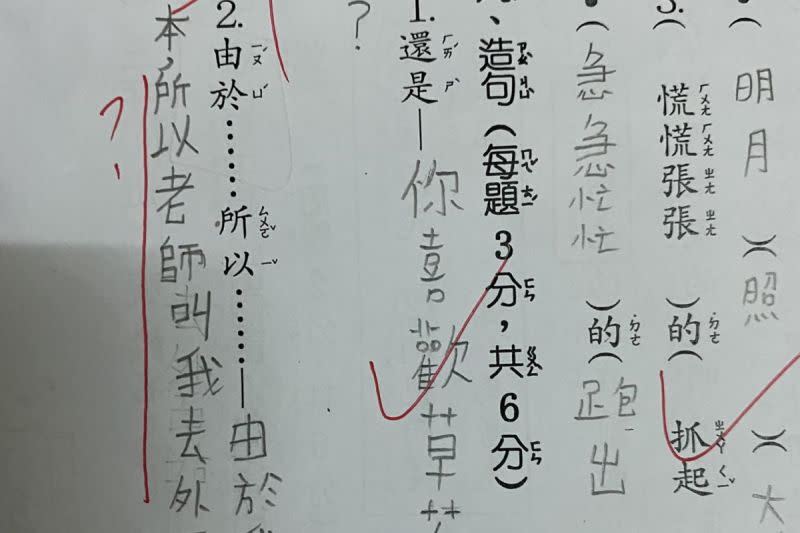 (明月)照(大
3.(慌慌張張)的(抓起
(急急忙忙)的(跑出
、造句(每題3分,共6分)
1.還是—你喜歡草
?
2.由於……所以……—由於
本,所以老師叫我去外
?